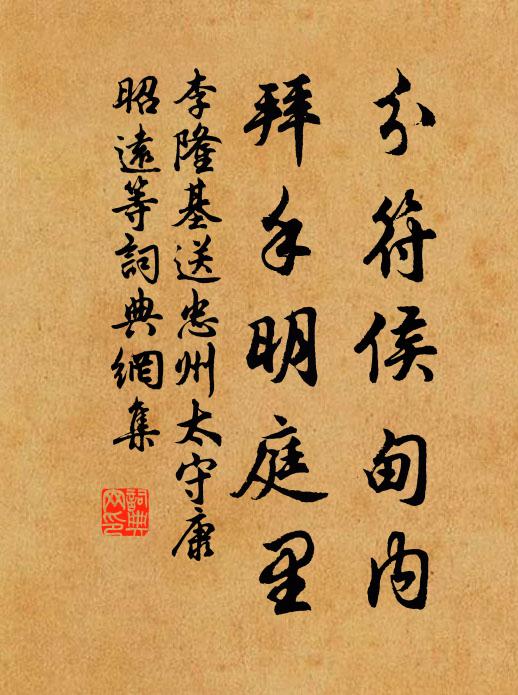 分符侯甸内
拜手明庭里
李隆基送忠州太守康
昭遠等詞典網集
詞典
网印